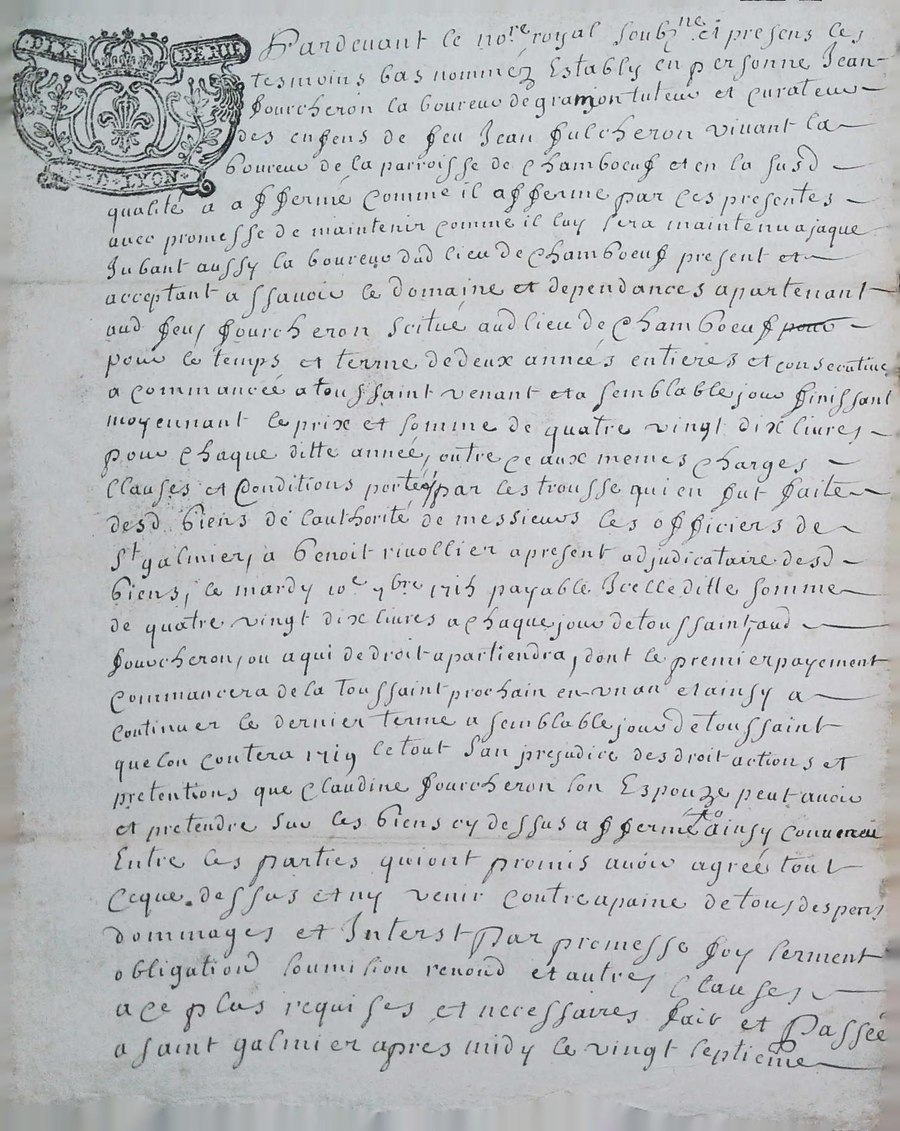 DIX DENIE
G. D. LYON
Pardevant le nore royal soubzne et presens les
tesmoins bas nommez Establÿ en personne Jean
fourcheron laboureur de gramon tuteur et curateur
des enfens de feu Jean fulcheron vivant la
boureur de la parroisse de Chamboeuf et en la susd
qualité a afferme comme il afferme par ces presentes
avec promesse de maintenir comme il luy sera maintenu ajaque
Jubant aussy laboureur dud lieu de Chamboeuf present et
acceptant assavoir le domaine et dependances apartenant
aud feu, fourcheron scitué aud lieu de Chamboeuf pour
pour le temps et terme de deux années entieres et consecutives
a commancée a toussaint venant et a semblable jour finissant
moyennant le prix et somme de quatre vingt dix livres
pour chaque ditte année, outre ce aux memes charges
Clauses et Conditions portées par lestrousse qui en fut faite
desd biens de lauthorité de messieurs les officiers de
St galmier, a benoit rivollier apresent adjudicataire desd
biens, le mardy 10e 7bre 1715 payable Icelle ditte somme
de quatre vingt dix livres a chaque jour de toussaint, aud
fourcheron, ou a qui de droit apartiendra, dont le premier payement
commancera de la toussaint prochain en un an et ainsy a
continuer le dernier terme a semblable jour de toussaint
que lon contera 1719 le tout san prejudice des droit actions et
pretentions que Claudine fourcheron son Espouze peut avoir
et pretendre sur les biens cy dessus affermé ainsy convenu
Entre les parties qui ont promis avoir agreé tout
Ceque dessus et ny venir contre a paine de tous despens
dommages et Interst Par promesse foy serment
obligationd soumition renond et autres Clauses
a ce plus requises et necessaires fait et Passée
a saint galmier apres midy le vingt septieme